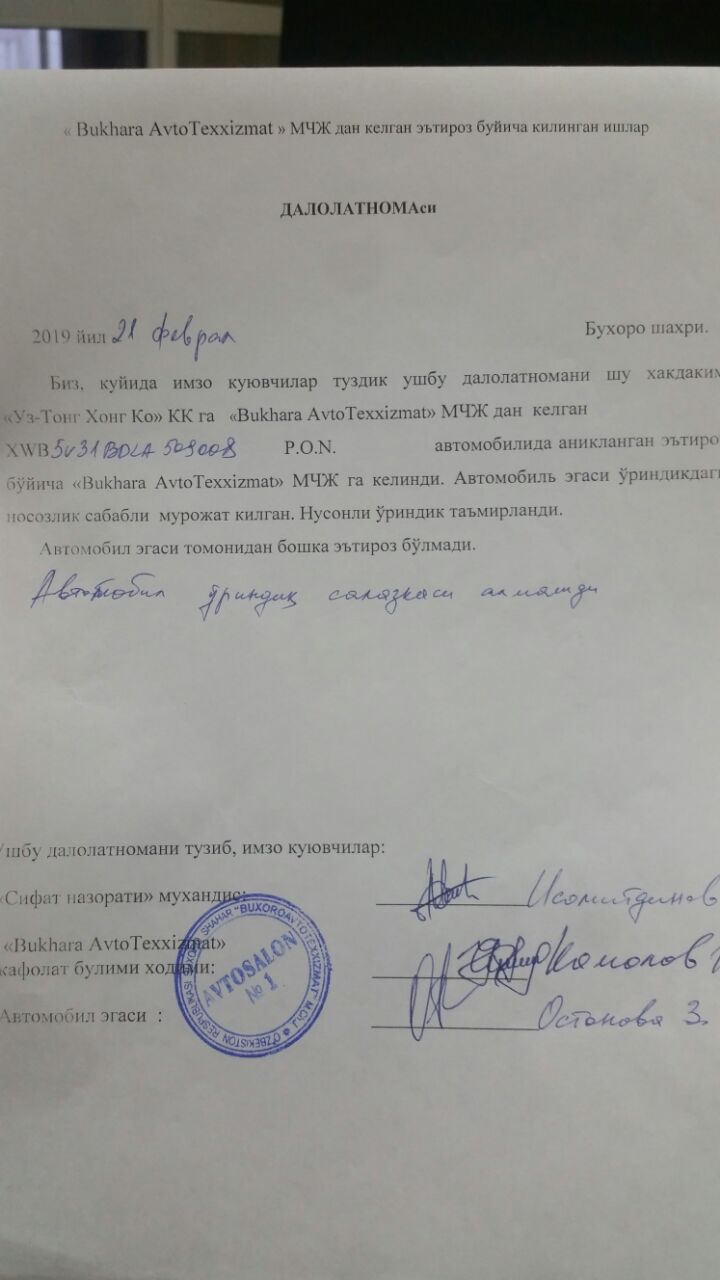 « Bukhara AvtoTexxizmat » МЧЖ дан келган эътироз буйича килинган ишлар
ДАЛОЛАТНОМАси
2019 йил 21 феврал Бухоро шахри.
Биз, куйида имзо куювчилар туздик ушбу далолатномани шу хакдаким
«Уз-Тонг Хонг Ко» КК га «Bukhara AvtoTexxizmat» МЧЖ дан келган
XWB5V31BDLA509008 P.O.N. автомобилида аникланган эътиро
бўйича «Bukhara AvtoTexxizmat» МЧЖ га келинди. Автомобиль эгаси ўриндикдаг
носозлик сабабли мурожат килган. Нусонли ўриндик таъмирланди.
Автомобил эгаси томонидан бошка эътироз бўлмади.
Автомобил ўриндиқ салазкаси алмашди
Ушбу далолатномани тузиб, имзо куювчилар:
«Сифат назорати» мухандис:
«Bukhara AvtoTexxizmat»
кафолат булими ходими: Камолов
Автомобил эгаси : Остонова З.
O'ZBEKISTON RESPUBLIKASI BUXORO SHAHAR "BUXOROAVTOTEXXIZMAT" M.Ch.J
AVTOSALON
№ 1